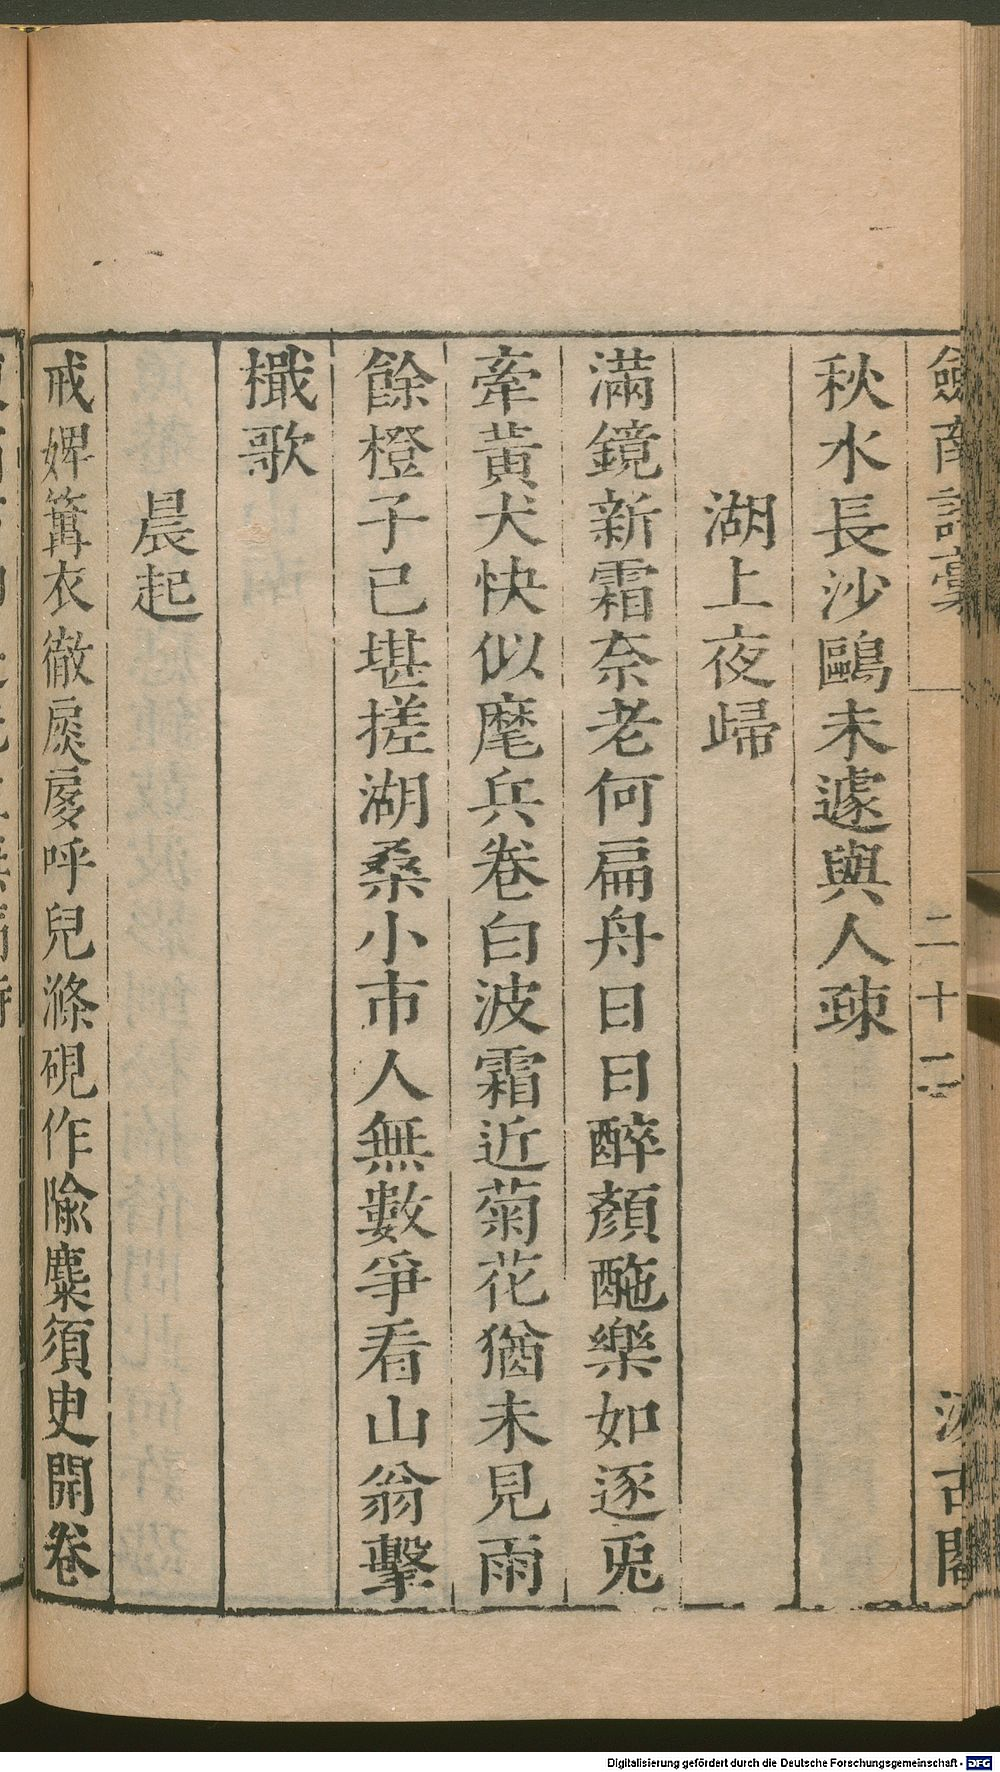 劍南詩稾
二十一
汲古閣
秋水長沙鷗未遽與人疎
湖上夜歸
滿鏡新霜奈老何扁舟日日醉顏酡樂如逐兎
牽黃犬快似麾兵卷白波霜近菊花猶未見雨
餘橙子已堪搓湖桑小市人無數爭看山翁擊
檝歌
晨起
戒婢篝衣徹扊扅呼兒滌硯作隃麋須史開卷
Digitalisierung gefördert durch die Deutsche Forschungsgemeinschaft - DFG